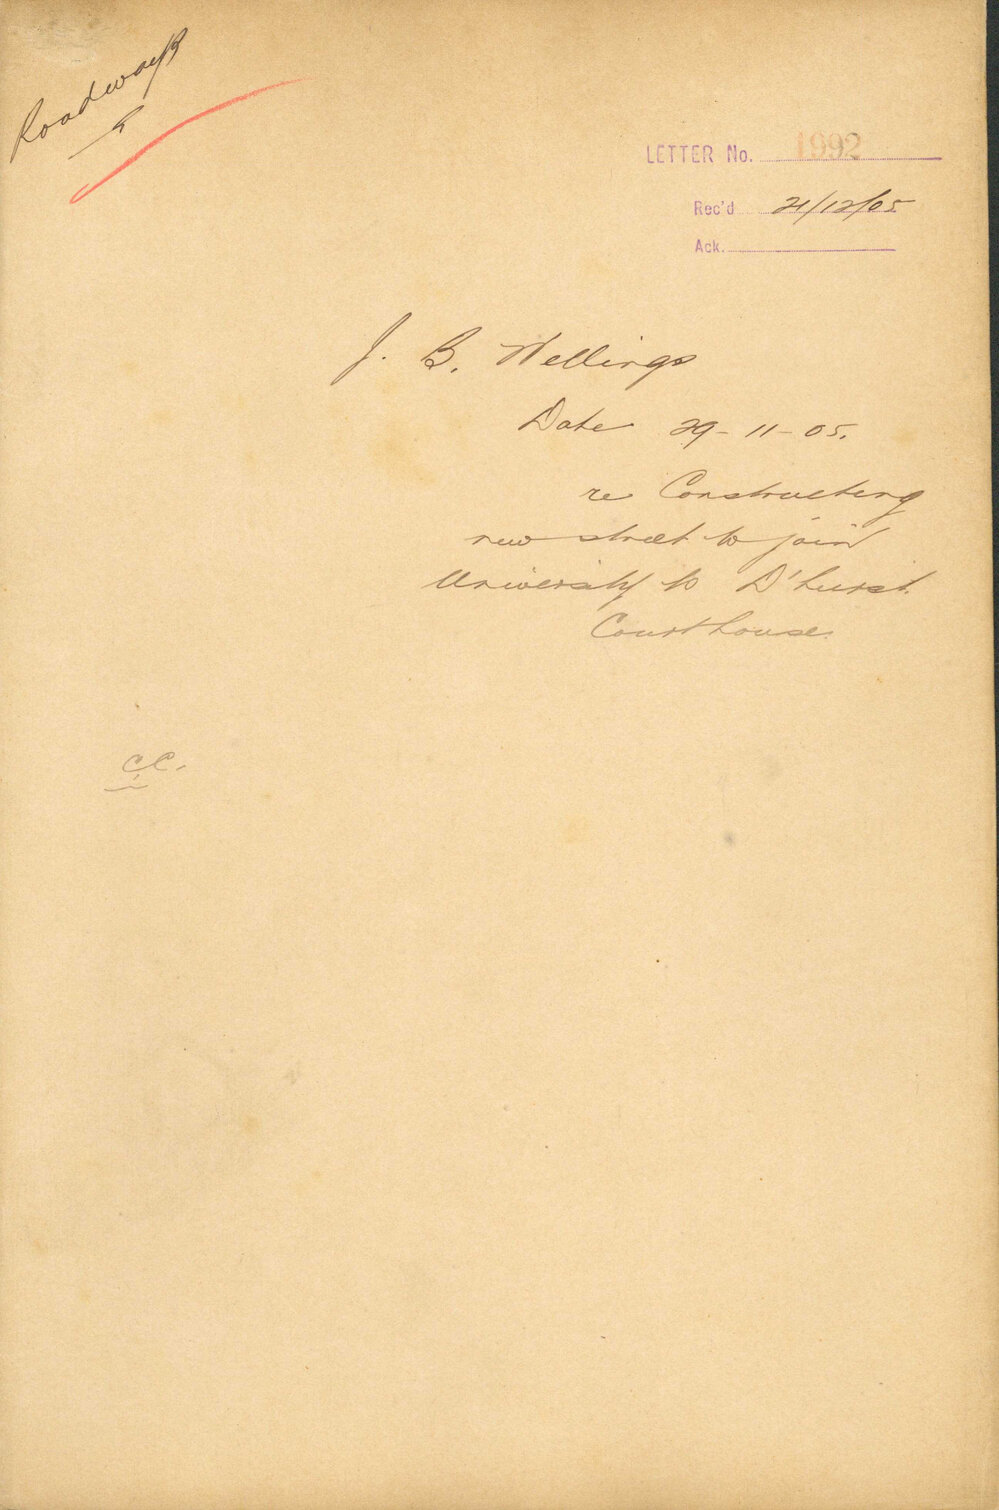 Roadways
LETTER No. 1992
Rec'd 21/12/05
Ack.
J. B. Wellings
Date 29-11-05.
re Constructing
new street to join
University to D'hurst
Courthouse.
C.C.